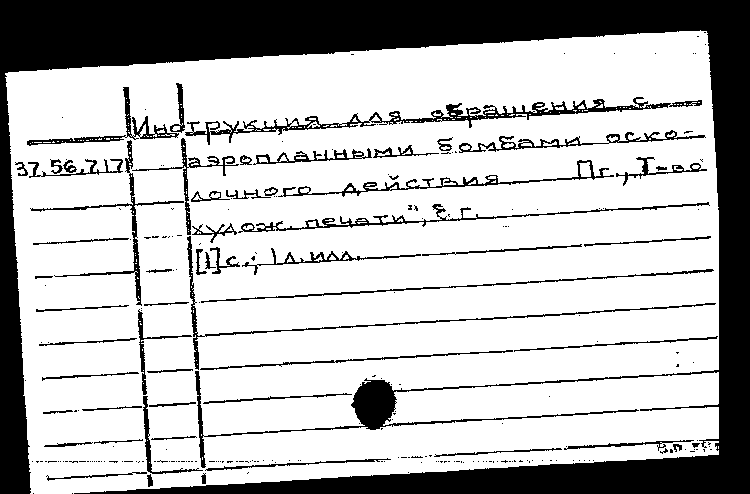 Инструкция для обращения с
37.56.7.171 аэропланными бомбами оско-
лочного действия Пг., Т-во
худож. печати", б г.
[1]с.; 1 л. илл.